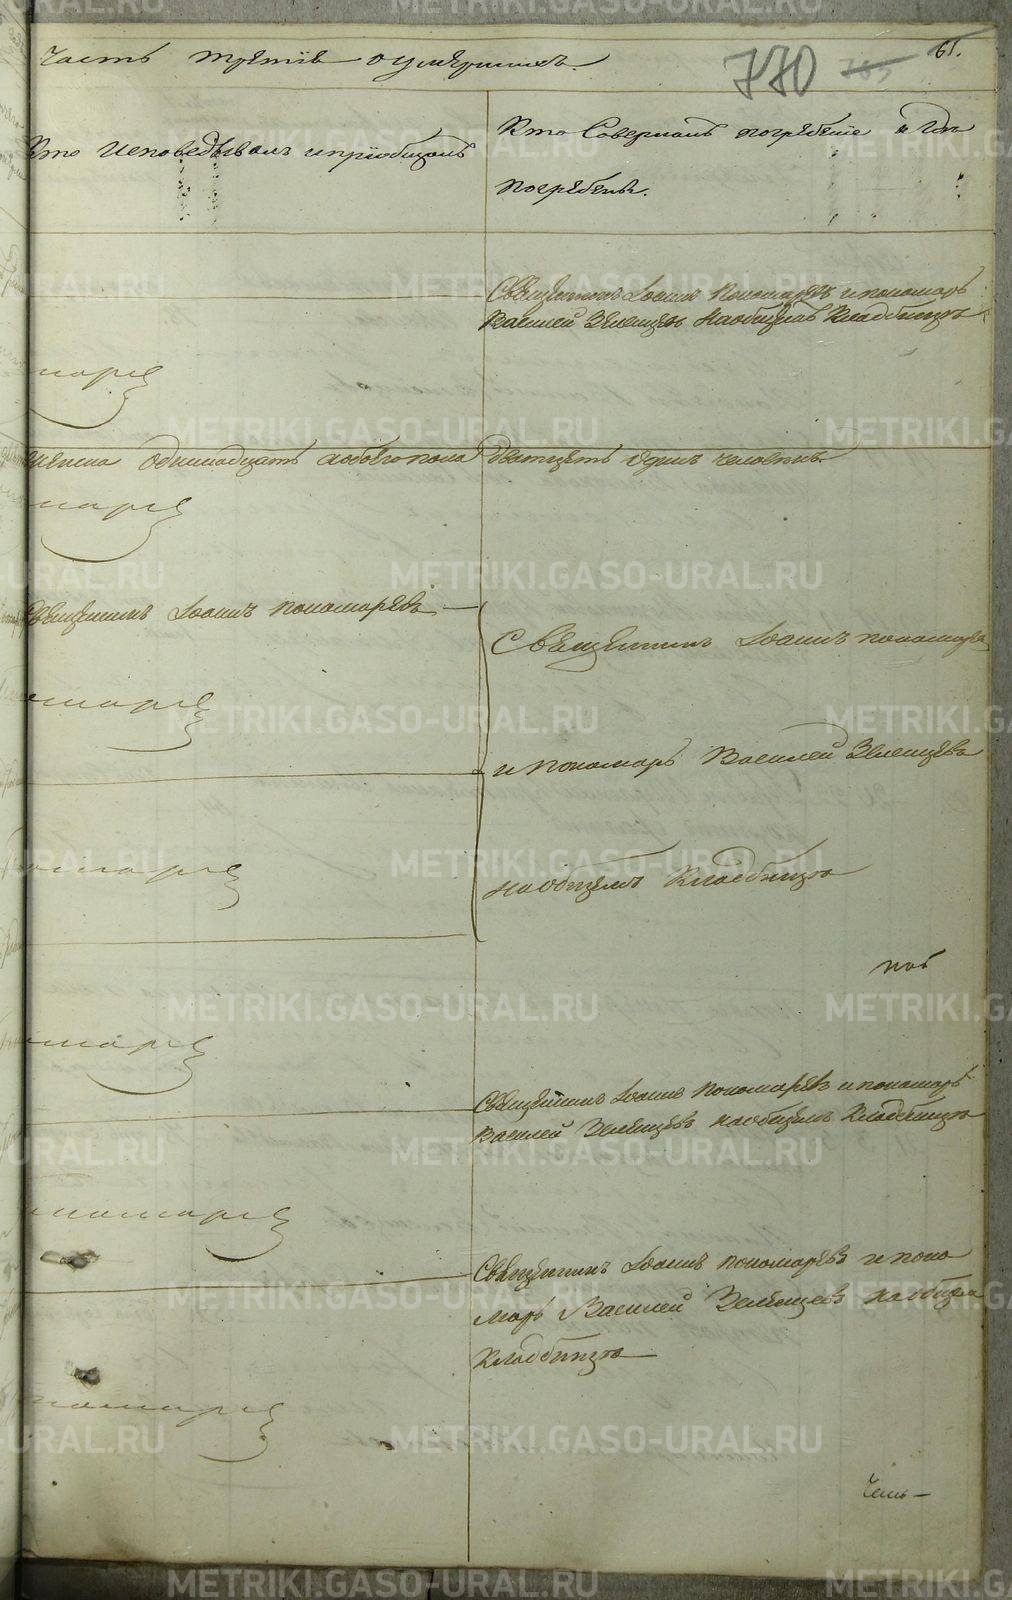 Часть третїя о умершихъ.
770
765
61.
Кто исповедывалъ и прїобщалъ
Кто Совершалъ погребенїе и где
Погребены.
Священникъ Іоаннъ Пономаревъ и пономарь
Василей Зеленцовъ на общемъ Кладбище
марь
одиннадцать а обоего пола двадцеть один человекъ.
марь
Священникъ Іоаннъ пономаревъ
Священникъ Іоаннъ пономаревъ
марь
и пономарь Василей Зеленцовъ
номарь
на общемъ Кладбище
поб
марь
Священникъ Іоаннъ Пономаревъ и пономарь
Василей Зеленцовъ на общемъ Кладбище
номарь
Священникъ Іоаннъ пономаревъ и поно
марь Василей Зеленцовъ на общем
Кладбище
номарь
METRIKI.GASO-URAL.RU